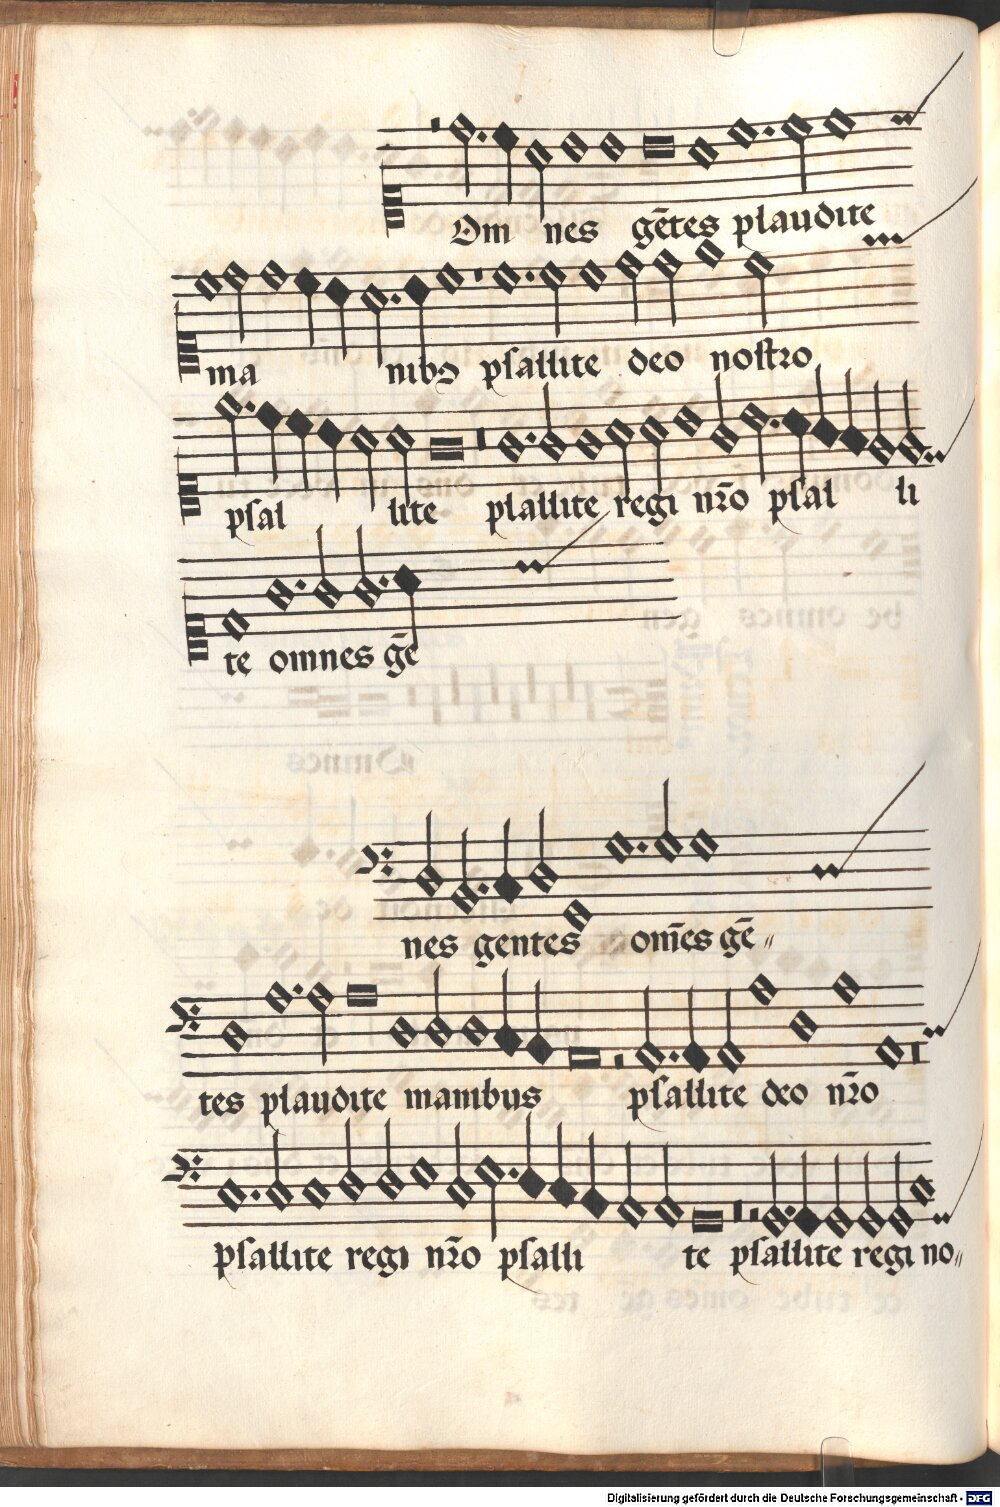 Om nes gētes plaudite
ma nibꝰ psallite deo nostro
psal lite psallite regi nr̄o psal li
te omnes gē
nes gentes om̄es gē〃
tes plaudite manibus psallite deo nr̄o
psallite regi nr̄o psalli te psallite regi no〃
Digitalisierung gefördert durch die Deutsche Forschungsgemeinschaft - DFG